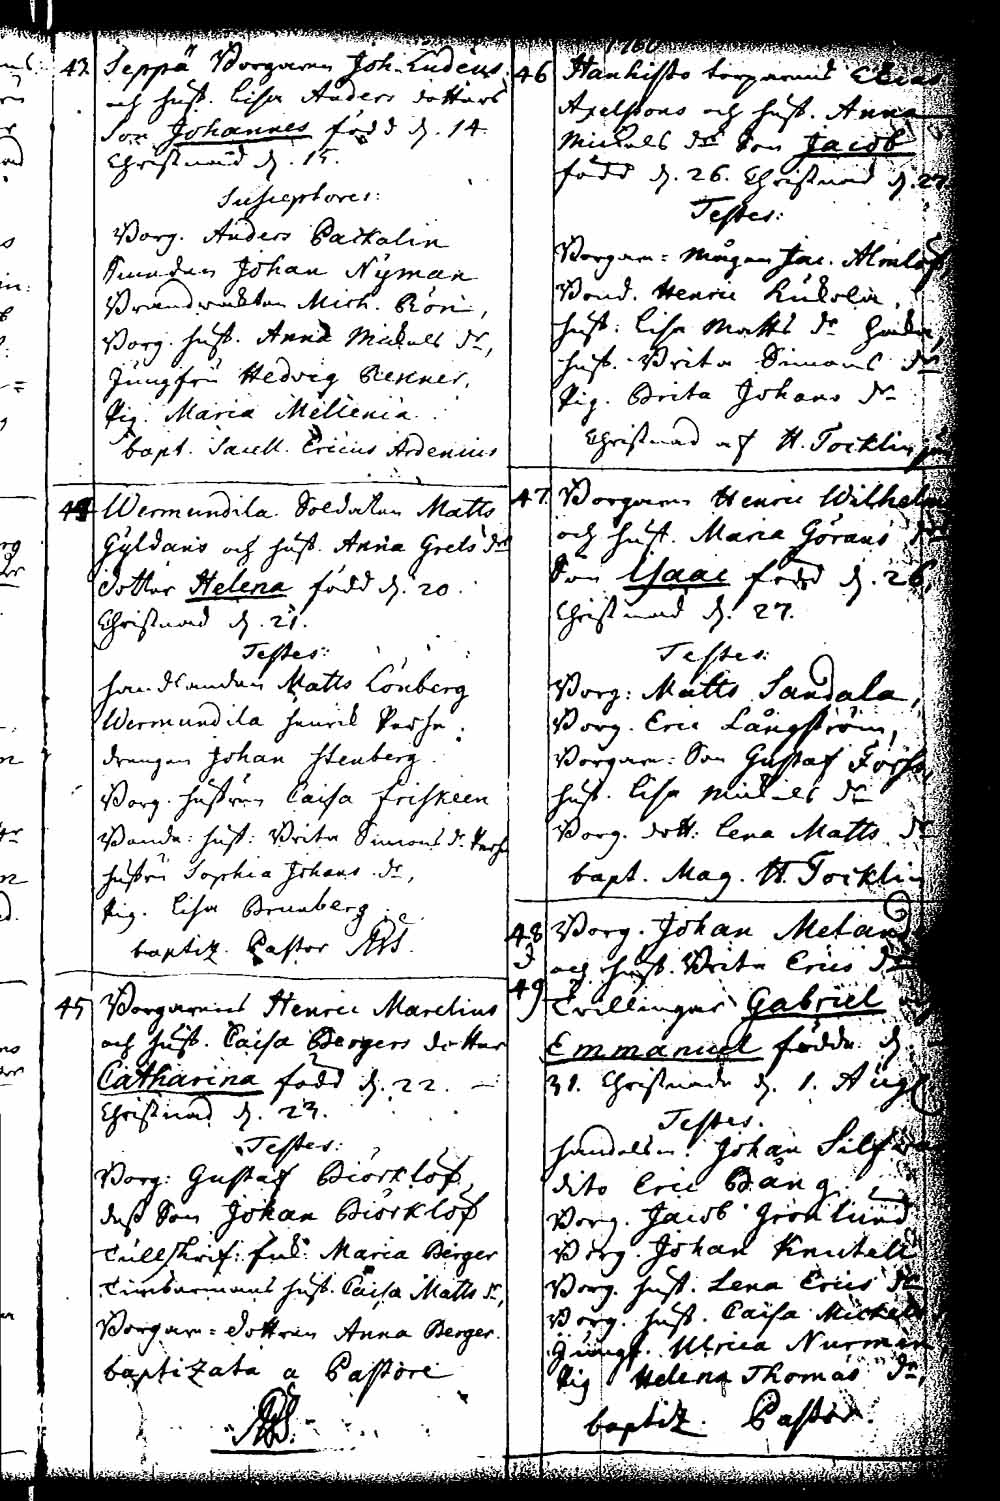 1760
43 Seppä Borgaren Joh. Ludeus
och hust. Lisa Anders dotters
Son Johannes född d. 14.
Christnad d. 15.
Susceptores:
Borg. Anders Packalin
Johan Nyman
Brandvakten Mich. Röni,
Borg. hust. Anna Mickels dr,
Jungfru Hedvig Renner,
Pig. Maria Mellenia.
bapt. Sacell. Ericus Ardenius
44 Wermundila Soldaten Matts
Gyldans och hust. Anna Grels dr
dotter Helena född d. 20.
Christnad d. 21.
Testes:
Matts Lönberg
Wermundila Henrik
drengen Johan Stenberg
Borg. hustrun Caisa Friskeen
Bonde: hust: Brita Simons dr
hustru Sophia Johans dr,
Pig. Lisa Brunberg.
baptiz. Pastor
45 Borgarens Henric Marelius
och hust. Caisa Bergers dotter
Catharina född d. 22.
Christnad d. 23.
Testes:
Borg: Gustaf Biörklöf,
dess Son Johan Biörklöf
Tullskrif: fru: Maria Berger
Timbermans hust. Caisa Matts dr,
Borgare=dottren Anna Berger.
baptizata a Pastore
46 Hanhisto torparens Elias
Axelssons och hust. Anna
Mickels dr Son Jacob
född d. 26. Christnad d. 27
Testes:
Borgar=mågen Jac. Almlöf
Bond. Henric Kukola,
hust: Lisa Matts dr
hust. Brita Simons dr
Pig. Brita Johans dr
Christnad af H. Tocklin
47. Borgaren Henric Wilhelm
och hust. Maria Görans dr
Son Isaac född d. 26,
Christnad d. 27.
Testes:
Borg: Matts Sandala,
Borg. Eric Långström,
Borgare: Son Gustaf
hust. Lisa Mickels dr
Borg. dott: Lena Matts dr
bapt. Mag. H. Tocklin
48 Borg. Johan
49 och hust. Brita Erics dr
Tvillingar Gabriel och
Emmanuel födde d.
31. Christnade d. 1. Aug
Testes.
Johan
dito Eric Bång.
Borg. Jacob Grönlund
Borg. Johan Knutell
Borg. hust. Lena Erics dr
Borg. hust. Caisa Mickels
Jungf. Ulrica Nurman
Pig Helena Thomas dr,
baptiz. Pastor.